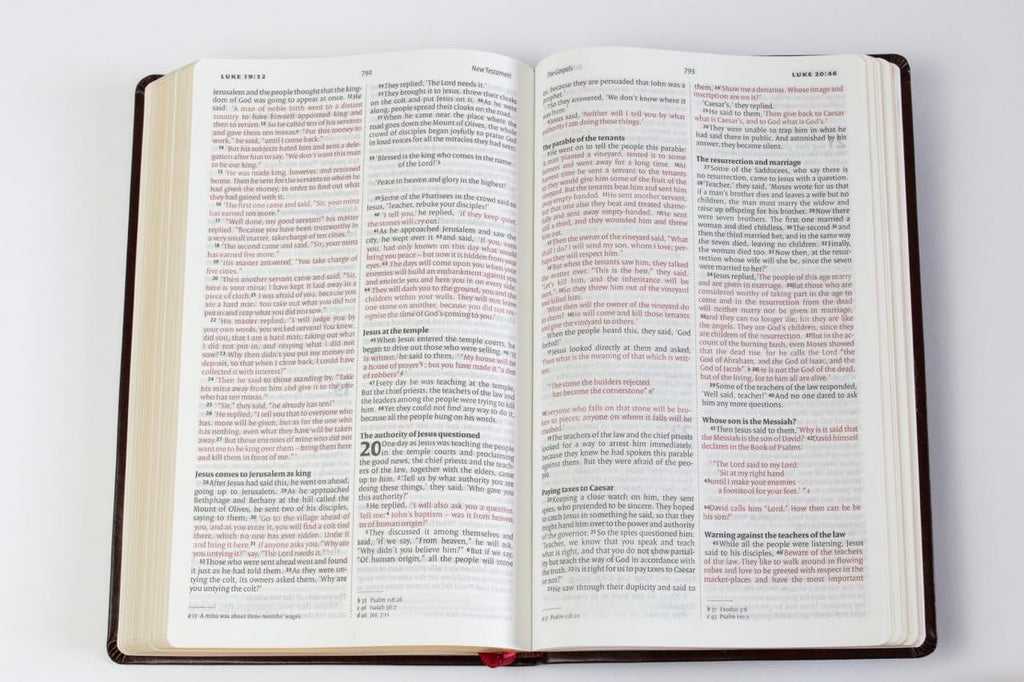 LUKE 19:12
792
New Testament
Jerusalem and the people thought that the king-
dom of God was going to appear at once. 12 He
said: 'A man of noble birth went to a distant
country to have himself appointed king and
then to return. 13 So he called ten of his servants
and gave them ten minas. a "Put this money to
work," he said, "until I come back."
14 'But his subjects hated him and sent a dele-
gation after him to say, "We don't want this man
to be our king."
15 'He was made king, however, and returned
home. Then he sent for the servants to whom he
had given the money, in order to find out what
they had gained with it.
16 'The first one came and said, "Sir, your mina
has earned ten more."
17 '"Well done, my good servant!" his master
replied. "Because you have been trustworthy in
a very small matter, take charge of ten cities."
18 'The second came and said, "Sir, your mina
has earned five more."
19 'His master answered, "You take charge of
five cities."
20 'Then another servant came and said, "Sir,
here is your mina; I have kept it laid away in a
piece of cloth. 21 I was afraid of you, because you
are a hard man. You take out what you did not
put in and reap what you did not sow."
22 'His master replied, "I will judge you by
your own words, you wicked servant! You knew,
did you, that I am a hard man, taking out what
I did not put in, and reaping what I did not
sow? 23 Why then didn't you put my money on
deposit, so that when I came back, I could have
collected it with interest?"
24 'Then he said to those standing by, "Take
his mina away from him and give it to the one
who has ten minas."
25 '"Sir," they said, "he already has ten!"
26 'He replied, "I tell you that to everyone who
has, more will be given, but as for the one who
has nothing, even what they have will be taken
away. 27 But those enemies of mine who did not
want me to be king over them – bring them here
and kill them in front of me."'
Jesus comes to Jerusalem as king
28 After Jesus had said this, he went on ahead,
going up to Jerusalem. 29 As he approached
Bethphage and Bethany at the hill called the
Mount of Olives, he sent two of his disciples,
saying to them, 30 'Go to the village ahead of
you, and as you enter it, you will find a colt tied
there, which no one has ever ridden. Untie it
and bring it here. 31 If anyone asks you, "Why are
you untying it?" say, "The Lord needs it."'
32 Those who were sent ahead went and found
it just as he had told them. 33 As they were un-
tying the colt, its owners asked them, 'Why are
you untying the colt?'
a 13 A mina was about three months' wages.
34 They replied, 'The Lord needs it.'
35 They brought it to Jesus, threw their cloaks
on the colt and put Jesus on it. 36 As he went
along, people spread their cloaks on the road.
37 When he came near the place where the
road goes down the Mount of Olives, the whole
crowd of disciples began joyfully to praise God
in loud voices for all the miracles they had seen:
38 'Blessed is the king who comes in the name
of the Lord!' b
'Peace in heaven and glory in the highest!'
39 Some of the Pharisees in the crowd said to
Jesus, 'Teacher, rebuke your disciples!'
40 'I tell you,' he replied, 'if they keep quiet,
the stones will cry out.'
41 As he approached Jerusalem and saw the
city, he wept over it 42 and said, 'If you, even
you, had only known on this day what would
bring you peace – but now it is hidden from your
eyes. 43 The days will come upon you when your
enemies will build an embankment against you
and encircle you and hem you in on every side.
44 They will dash you to the ground, you and the
children within your walls. They will not leave
one stone on another, because you did not rec-
ognise the time of God's coming to you.'
Jesus at the temple
45 When Jesus entered the temple courts, he
began to drive out those who were selling. 46 'It
is written,' he said to them, '"My house will be
a house of prayer" c; but you have made it "a den
of robbers".' d
47 Every day he was teaching at the temple.
But the chief priests, the teachers of the law and
the leaders among the people were trying to kill
him. 48 Yet they could not find any way to do it,
because all the people hung on his words.
The authority of Jesus questioned
20 One day as Jesus was teaching the people
in the temple courts and proclaiming
the good news, the chief priests and the teach-
ers of the law, together with the elders, came
up to him. 2 'Tell us by what authority you are
doing these things,' they said. 'Who gave you
this authority?'
3 He replied, 'I will also ask you a question.
Tell me: 4 John's baptism – was it from heaven,
or of human origin?'
5 They discussed it among themselves and
said, 'If we say, "From heaven," he will ask,
"Why didn't you believe him?" 6 But if we say,
"Of human origin," all the people will stone
b 38 Psalm 118:26
c 46 Isaiah 56:7
d 46 Jer. 7:11
The Gospels
793
LUKE 20:46
us, because they are persuaded that John was a
7 So they answered, 'We don't know where it
was from.'
8 Jesus said, 'Neither will I tell you by what
authority I am doing these things.'
The parable of the tenants
9 He went on to tell the people this parable:
'A man planted a vineyard, rented it to some
and went away for a long time. 10 At
harvest time he sent a servant to the tenants
so they would give him some of the fruit of the
vineyard. But the tenants beat him and sent him
away empty-handed. 11 He sent another servant,
but that one also they beat and treated shame-
fully and sent away empty-handed. 12 He sent
still a third, and they wounded him and threw
him out.
13 'Then the owner of the vineyard said, "What
shall I do? I will send my son, whom I love; per-
haps they will respect him."
14 'But when the tenants saw him, they talked
the matter over. "This is the heir," they said.
"Let's kill him, and the inheritance will be
ours." 15 So they threw him out of the vineyard
and killed him.
'What then will the owner of the vineyard do
to them? 16 He will come and kill those tenants
and give the vineyard to others.'
When the people heard this, they said, 'God
forbid!'
17 Jesus looked directly at them and asked,
'Then what is the meaning of that which is writ-
ten:
'"The stone the builders rejected
has become the cornerstone" a?
18 Everyone who falls on that stone will be bro-
ken to pieces; anyone on whom it falls will be
crushed.'
19 The teachers of the law and the chief priests
looked for a way to arrest him immediately,
because they knew he had spoken this parable
against them. But they were afraid of the peo-
Paying taxes to Caesar
20 Keeping a close watch on him, they sent
spies, who pretended to be sincere. They hoped
to catch Jesus in something he said, so that they
might hand him over to the power and authority
of the governor. 21 So the spies questioned him:
'Teacher, we know that you speak and teach
what is right, and that you do not show partial-
ity but teach the way of God in accordance with
the truth. 22 Is it right for us to pay taxes to Caesar
or not?'
23 He saw through their duplicity and said to
a 17 Psalm 118:22
them, 24 'Show me a denarius. Whose image and
inscription are on it?'
'Caesar's,' they replied.
25 He said to them, 'Then give back to Caesar
what is Caesar's, and to God what is God's.'
26 They were unable to trap him in what he
had said there in public. And astonished by his
answer, they became silent.
The resurrection and marriage
27 Some of the Sadducees, who say there is
no resurrection, came to Jesus with a question.
28 'Teacher,' they said, 'Moses wrote for us that
if a man's brother dies and leaves a wife but no
children, the man must marry the widow and
raise up offspring for his brother. 29 Now there
were seven brothers. The first one married a
woman and died childless. 30 The second 31 and
then the third married her, and in the same way
the seven died, leaving no children. 32 Finally,
the woman died too. 33 Now then, at the resur-
rection whose wife will she be, since the seven
were married to her?'
34 Jesus replied, 'The people of this age marry
and are given in marriage. 35 But those who are
considered worthy of taking part in the age to
come and in the resurrection from the dead
will neither marry nor be given in marriage,
36 and they can no longer die; for they are like
the angels. They are God's children, since they
are children of the resurrection. 37 But in the ac-
count of the burning bush, even Moses showed
that the dead rise, for he calls the Lord "the
God of Abraham, and the God of Isaac, and the
God of Jacob". b 38 He is not the God of the dead,
but of the living, for to him all are alive.'
39 Some of the teachers of the law responded,
'Well said, teacher!' 40 And no one dared to ask
him any more questions.
Whose son is the Messiah?
41 Then Jesus said to them, 'Why is it said that
the Messiah is the son of David? 42 David himself
declares in the Book of Psalms:
'"The Lord said to my Lord:
'Sit at my right hand
43 until I make your enemies
a footstool for your feet.'" c
44 David calls him "Lord." How then can he be
his son?'
Warning against the teachers of the law
45 While all the people were listening, Jesus
said to his disciples, 46 'Beware of the teachers
of the law. They like to walk around in flowing
robes and love to be greeted with respect in the
market-places and have the most important
b 37 Exodus 3:6
c 43 Psalm 110:1